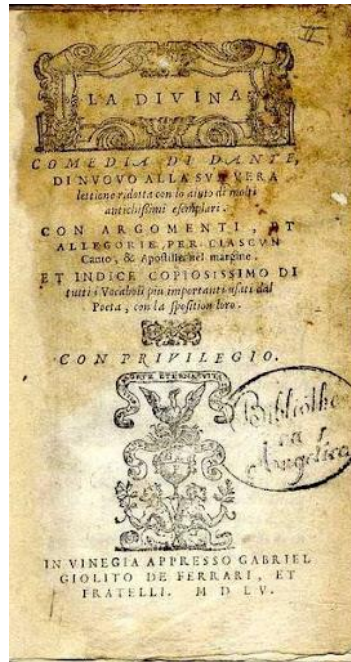 II
LA DIVINA
COMEDIA DI DANTE,
DI NVOVO ALLA SVA VERA
lettione ridotta con lo aiuto di molti
antichissimi esemplari.
CON ARGOMENTI, ET
ALLEGORIE PER CIASCVN
Canto, & Apostille nel margine.
ET INDICE COPIOSISSIMO DI
tutti i Vocaboli piu importanti usati dal
Poeta, con la sposition loro.
CON PRIVILEGIO.
Bibliothe
ca
Angelica
IN VINEGIA APPRESSO GABRIEL
GIOLITO DE FERRARI, ET
FRATELLI. M D LV.